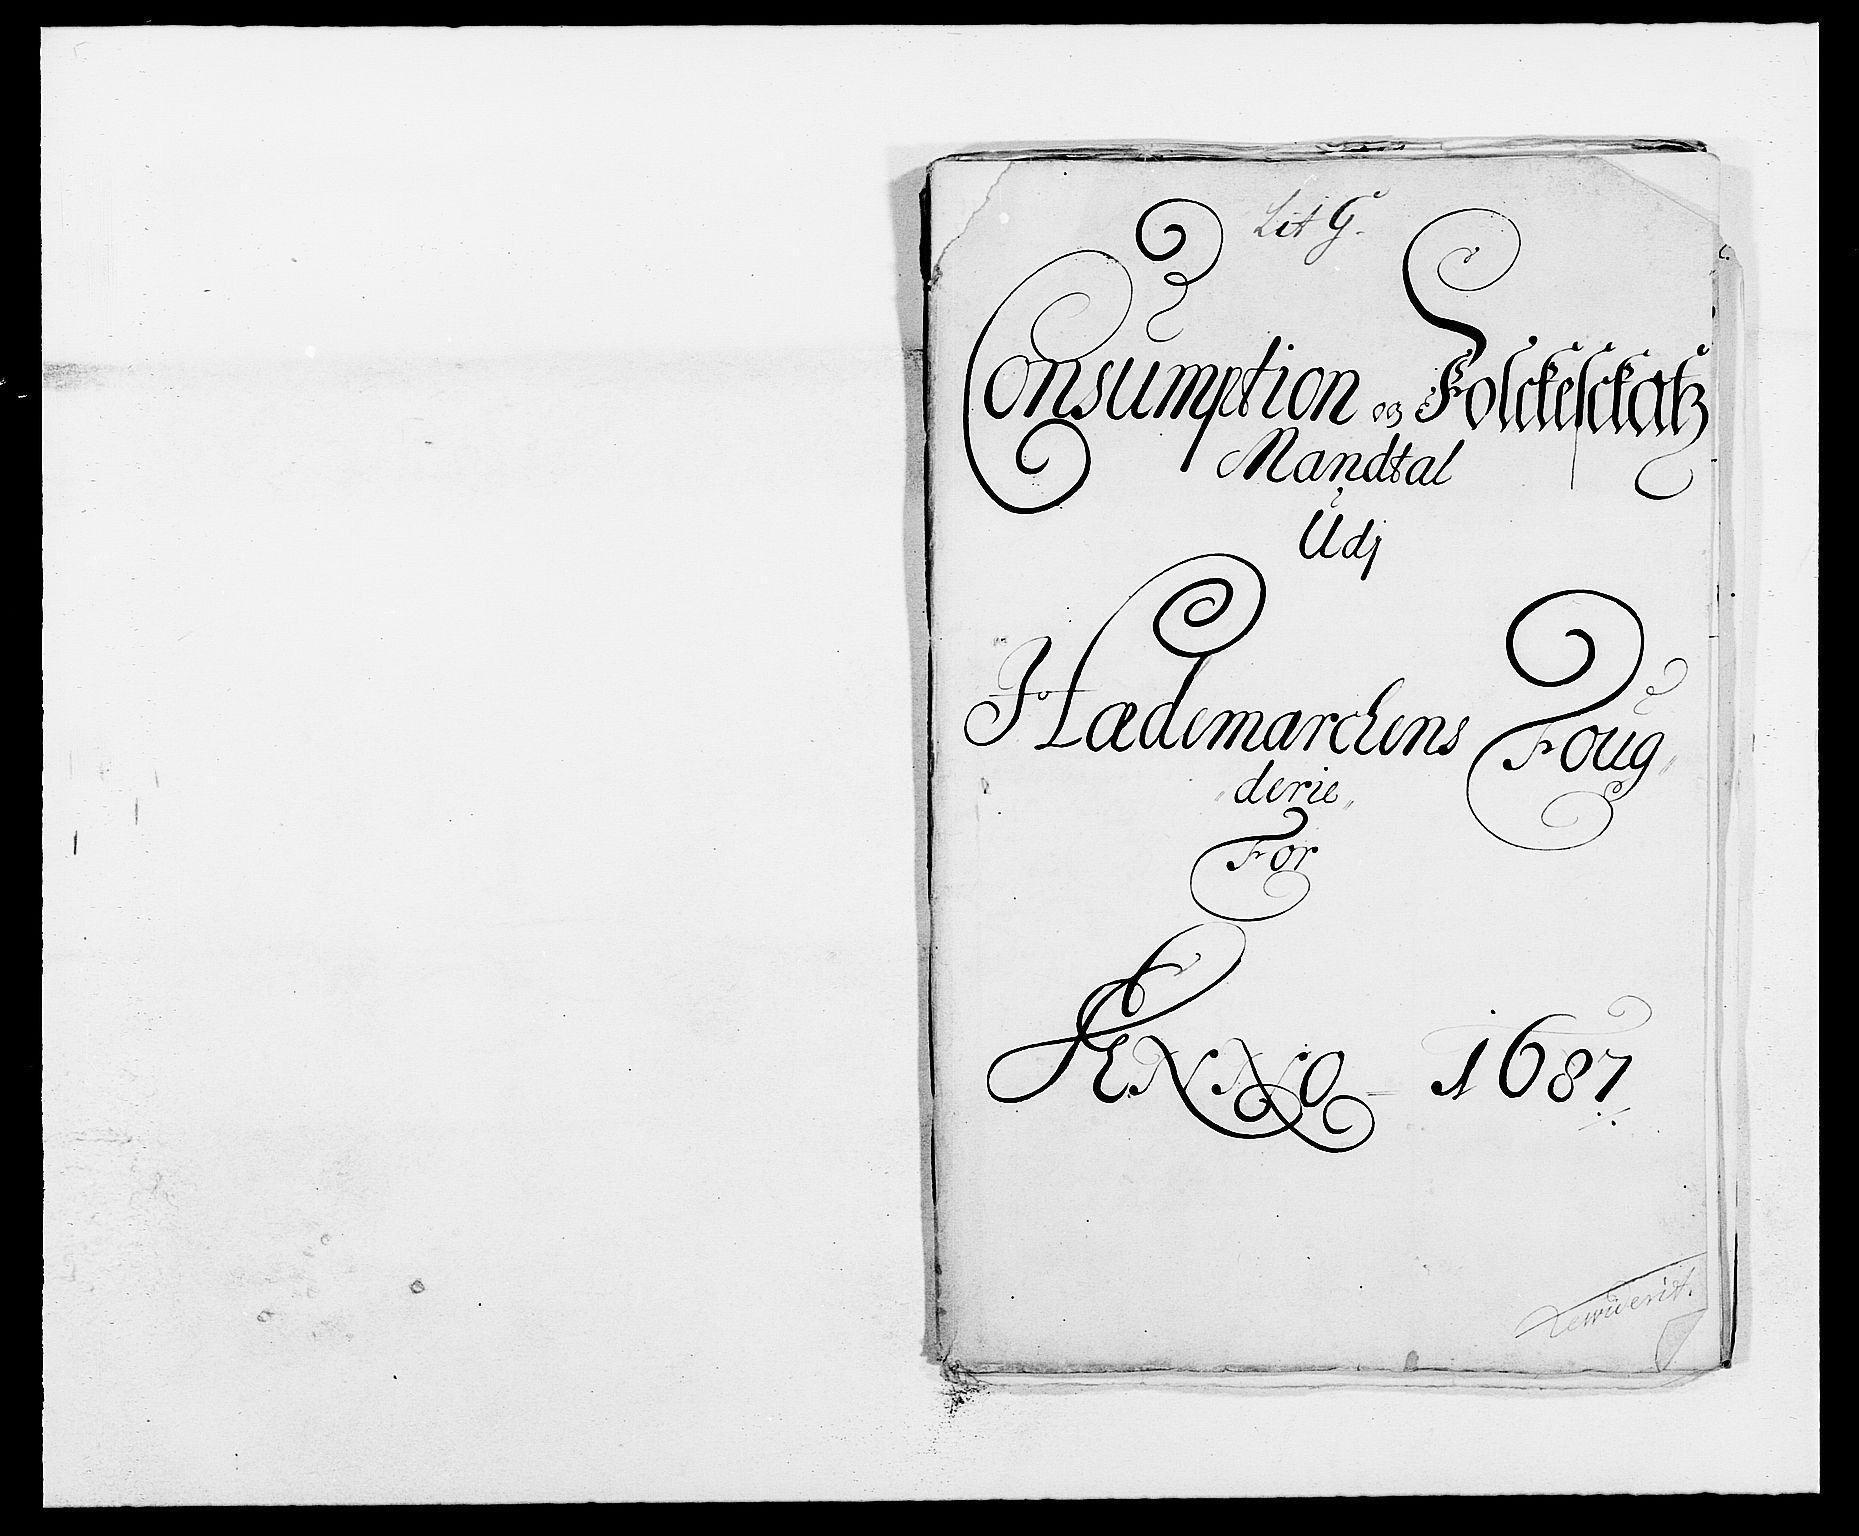 Lit G.
Consumption og Folckeschatz
Mandtal
Udj
Hædemarchens Foug
derie
For
ANNO 1687